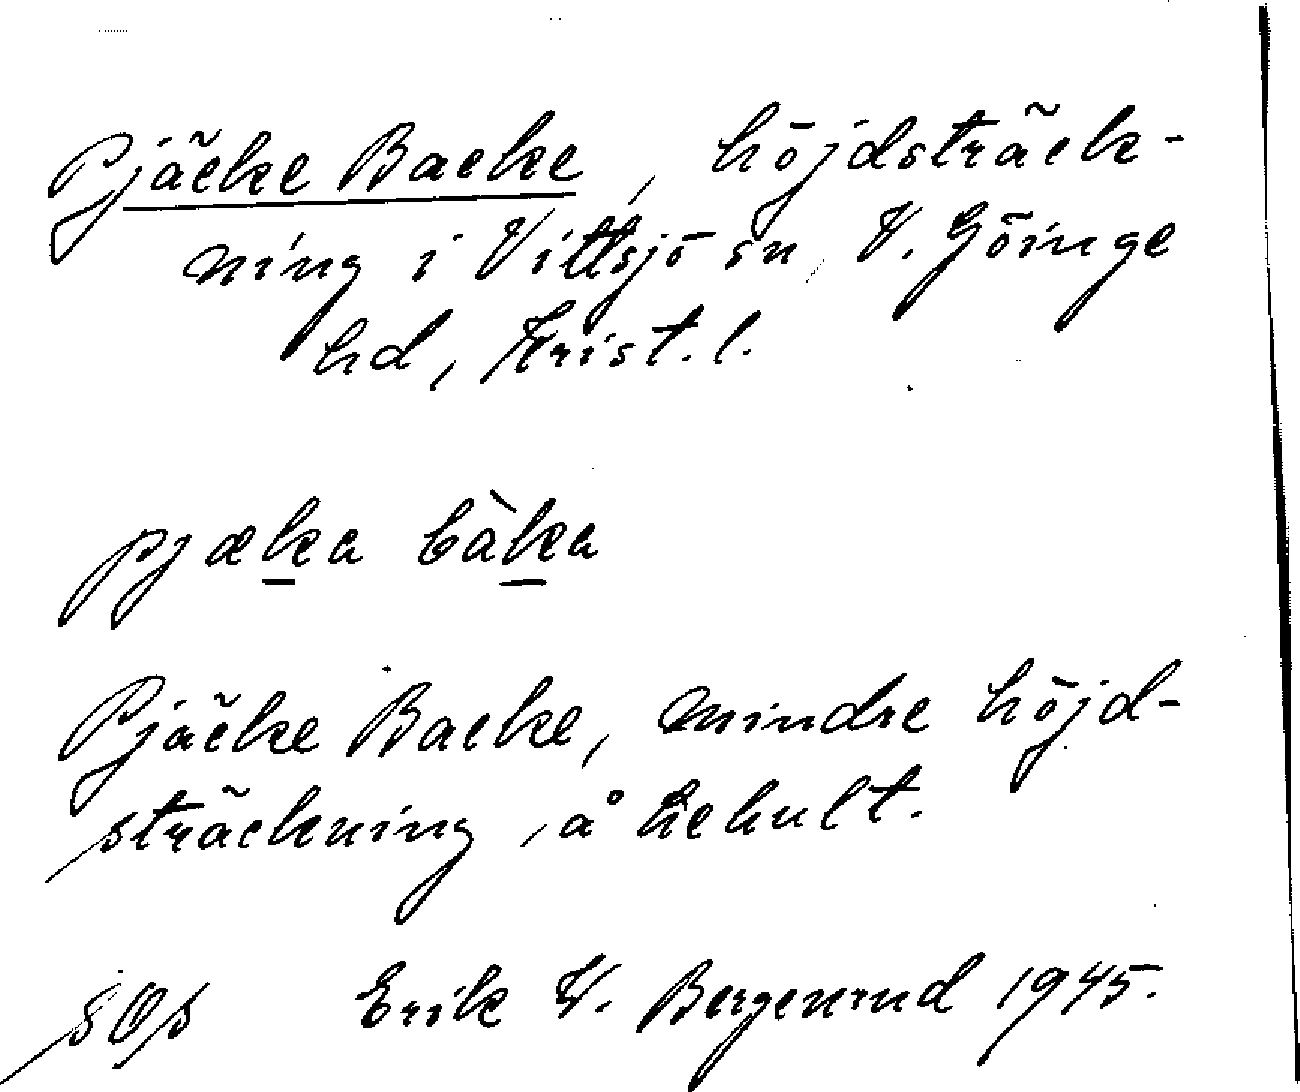 Pjäcke Backe, höjdsträck-
ning i Vittsjö sn, V. Göinge
hd, Krist. l.
pjæka bàka
Pjäcke Backe, mindre höjd-
sträckning, å Hehult.
Erik W. Bergenrud 1945.